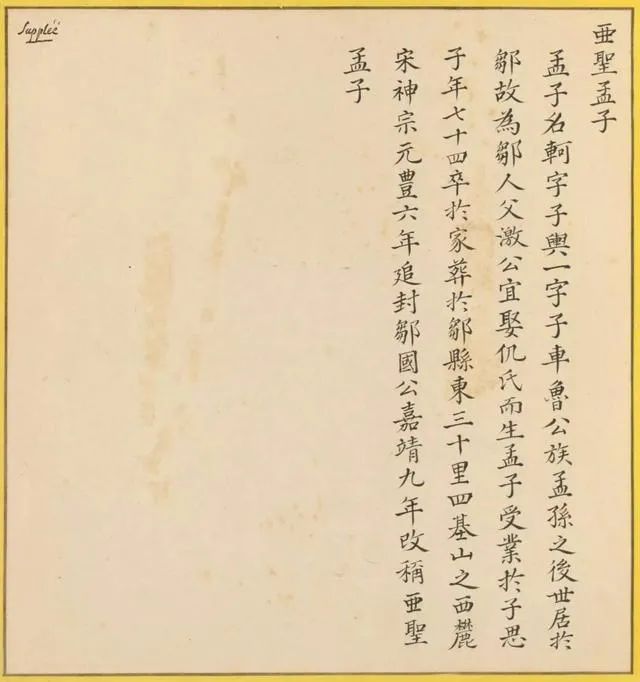 Suppléé
亜聖孟子
孟子名軻字子輿一字子車魯公族孟孫之後世居於
鄒故為鄒人父激公宜娶仉氏而生孟子受業於子思
子年七十四卒於家葬於鄒縣東三十里四基山之西麓
宋神宗元豊六年追封鄒國公嘉靖九年改稱亜聖
孟子